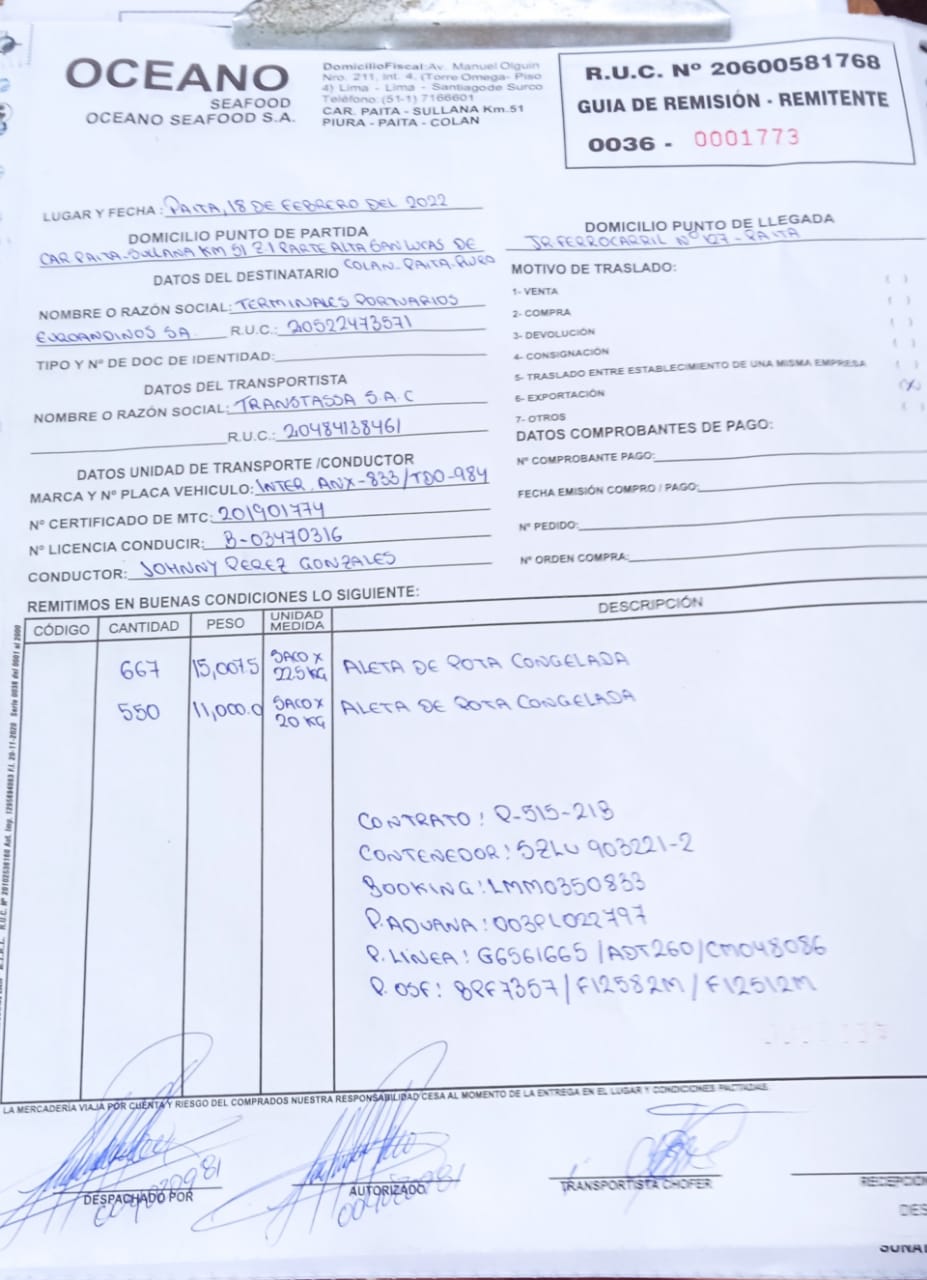 OCEANO
SEAFOOD
OCEANO SEAFOOD S.A.
DomicilioFiscal:Av. Manuel Olguin
Nro. 211, Int. 4, (Torre Omega- Piso
4) Lima - Lima - Santiagode Surco
Teléfono: (51-1) 7166601
CAR. PAITA - SULLANA Km.51
PIURA - PAITA - COLAN
R.U.C. Nº 20600581768
GUIA DE REMISIÓN - REMITENTE
0036 - 0001773
LUGAR Y FECHA : PAITA, 18 DE FEBRERO DEL 2022
DOMICILIO PUNTO DE PARTIDA
CAR PAITA-SULLANA KM 51 Z I PARTE ALTA SAN LUCAS DE
COLAN-PAITA-PIURA
DOMICILIO PUNTO DE LLEGADA
JR FERROCARRIL Nº 127 - PAITA
DATOS DEL DESTINATARIO
NOMBRE O RAZÓN SOCIAL: TERMINALES PORTUARIOS
EUROANDINOS SA R.U.C.: 20522473571
TIPO Y Nº DE DOC DE IDENTIDAD:
MOTIVO DE TRASLADO:
1- VENTA ( )
2- COMPRA ( )
3- DEVOLUCIÓN ( )
4- CONSIGNACIÓN ( )
5- TRASLADO ENTRE ESTABLECIMIENTO DE UNA MISMA EMPRESA ( )
6- EXPORTACIÓN (X)
7- OTROS ( )
DATOS DEL TRANSPORTISTA
NOMBRE O RAZÓN SOCIAL: TRANSTASSA S.A.C
R.U.C.: 20484138461
DATOS COMPROBANTES DE PAGO:
Nº COMPROBANTE PAGO:
FECHA EMISIÓN COMPRO / PAGO:
Nº PEDIDO:
Nº ORDEN COMPRA:
DATOS UNIDAD DE TRANSPORTE /CONDUCTOR
MARCA Y Nº PLACA VEHICULO: INTER. ANX-833/TDO-984
Nº CERTIFICADO DE MTC: 201901774
Nº LICENCIA CONDUCIR: B-03470316
CONDUCTOR: JOHNNY PEREZ GONZALES
REMITIMOS EN BUENAS CONDICIONES LO SIGUIENTE:
CÓDIGO CANTIDAD PESO UNIDAD MEDIDA DESCRIPCIÓN
667 15,007.5 SACO X 22.5 KG ALETA DE POTA CONGELADA
550 11,000.0 SACO X 20 KG ALETA DE POTA CONGELADA
CONTRATO: P-515-21B
CONTENEDOR: SZLU 903221-2
BOOKING: LMM0350833
P. ADUANA: 003PL022797
P. LINEA: G6561665 /ADT260/CM048086
P. OSF: BPF7357/F12582M/F12512M
LA MERCADERÍA VIAJA POR CUENTA Y RIESGO DEL COMPRADOS NUESTRA RESPONSABILIDAD CESA AL MOMENTO DE LA ENTREGA EN EL LUGAR Y CONDICIONES PACTADAS.
DESPACHADO POR
AUTORIZADO
TRANSPORTISTA CHOFER
RECEPCIÓN
DES
SUNA